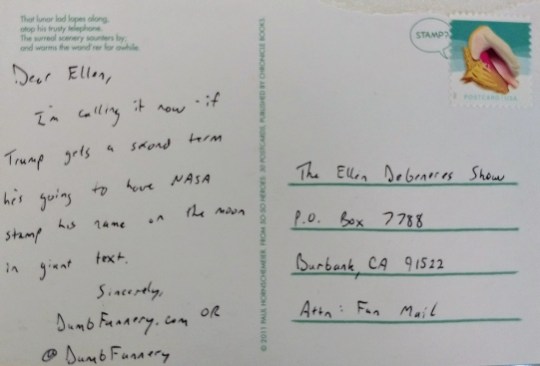 That lunar lad lopes along,
atop his trusty telephone.
The surreal scenery saunters by;
and warms the wand'rer for awhile.
Dear Ellen,
I'm calling it now - if
Trump gets a second term
he's going to have NASA
stamp his name on the moon
in giant text.
Sincerely,
DumbFunnery.com OR
@DumbFunnery
© 2011 PAUL HORNSCHEMEIER. FROM SO-SO HEROES: 30 POSTCARDS, PUBLISHED BY CHRONICLE BOOKS.
STAMP?
POSTCARD • USA
The Ellen DeGeneres Show
P.O. Box 7788
Burbank, CA 91522
Attn: Fan Mail